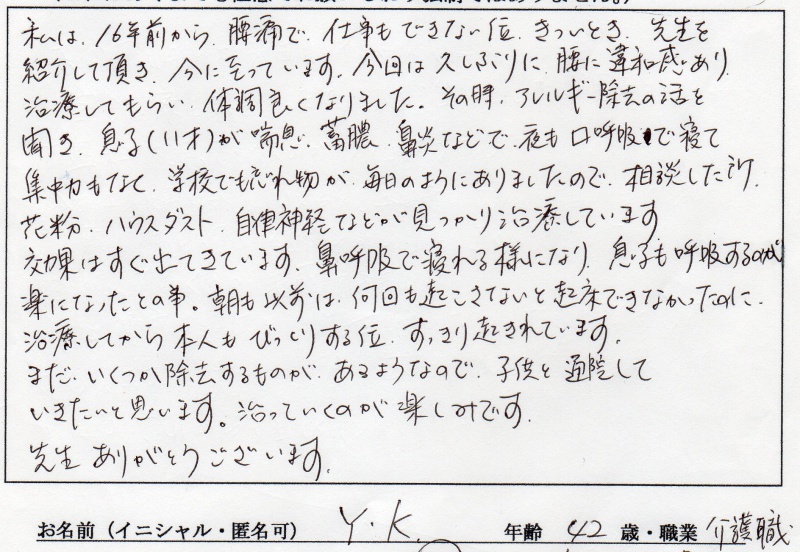 私は、16年前から、腰痛で、仕事もできない位、きついとき、先生を
紹介して頂き、今に至っています。今回は久しぶりに、腰に違和感あり
治療してもらい、体調良くなりました。その時、アレルギー除去の話を
聞き、息子(11才)が喘息、蓄膿、鼻炎などで、夜も口呼吸で寝て
集中力もなく、学校でも忘れ物が、毎日のようにありましたので、相談した所、
花粉、ハウスダスト、自律神経などが見つかり治療しています
効果はすぐ出てきています。鼻呼吸で寝れる様になり、息子も呼吸するのが
楽になったとの事。朝も以前は、何回も起こさないと起床できなかったのに、
治療してから本人もびっくりする位、すっきり起きれています。
まだ、いくつか除去するものが、あるようなので、子供と通院して
いきたいと思います。治っていくのが楽しみです。
先生ありがとうございます。
お名前(イニシャル・匿名可) Y.K. 年齢 42 歳・職業 介護職